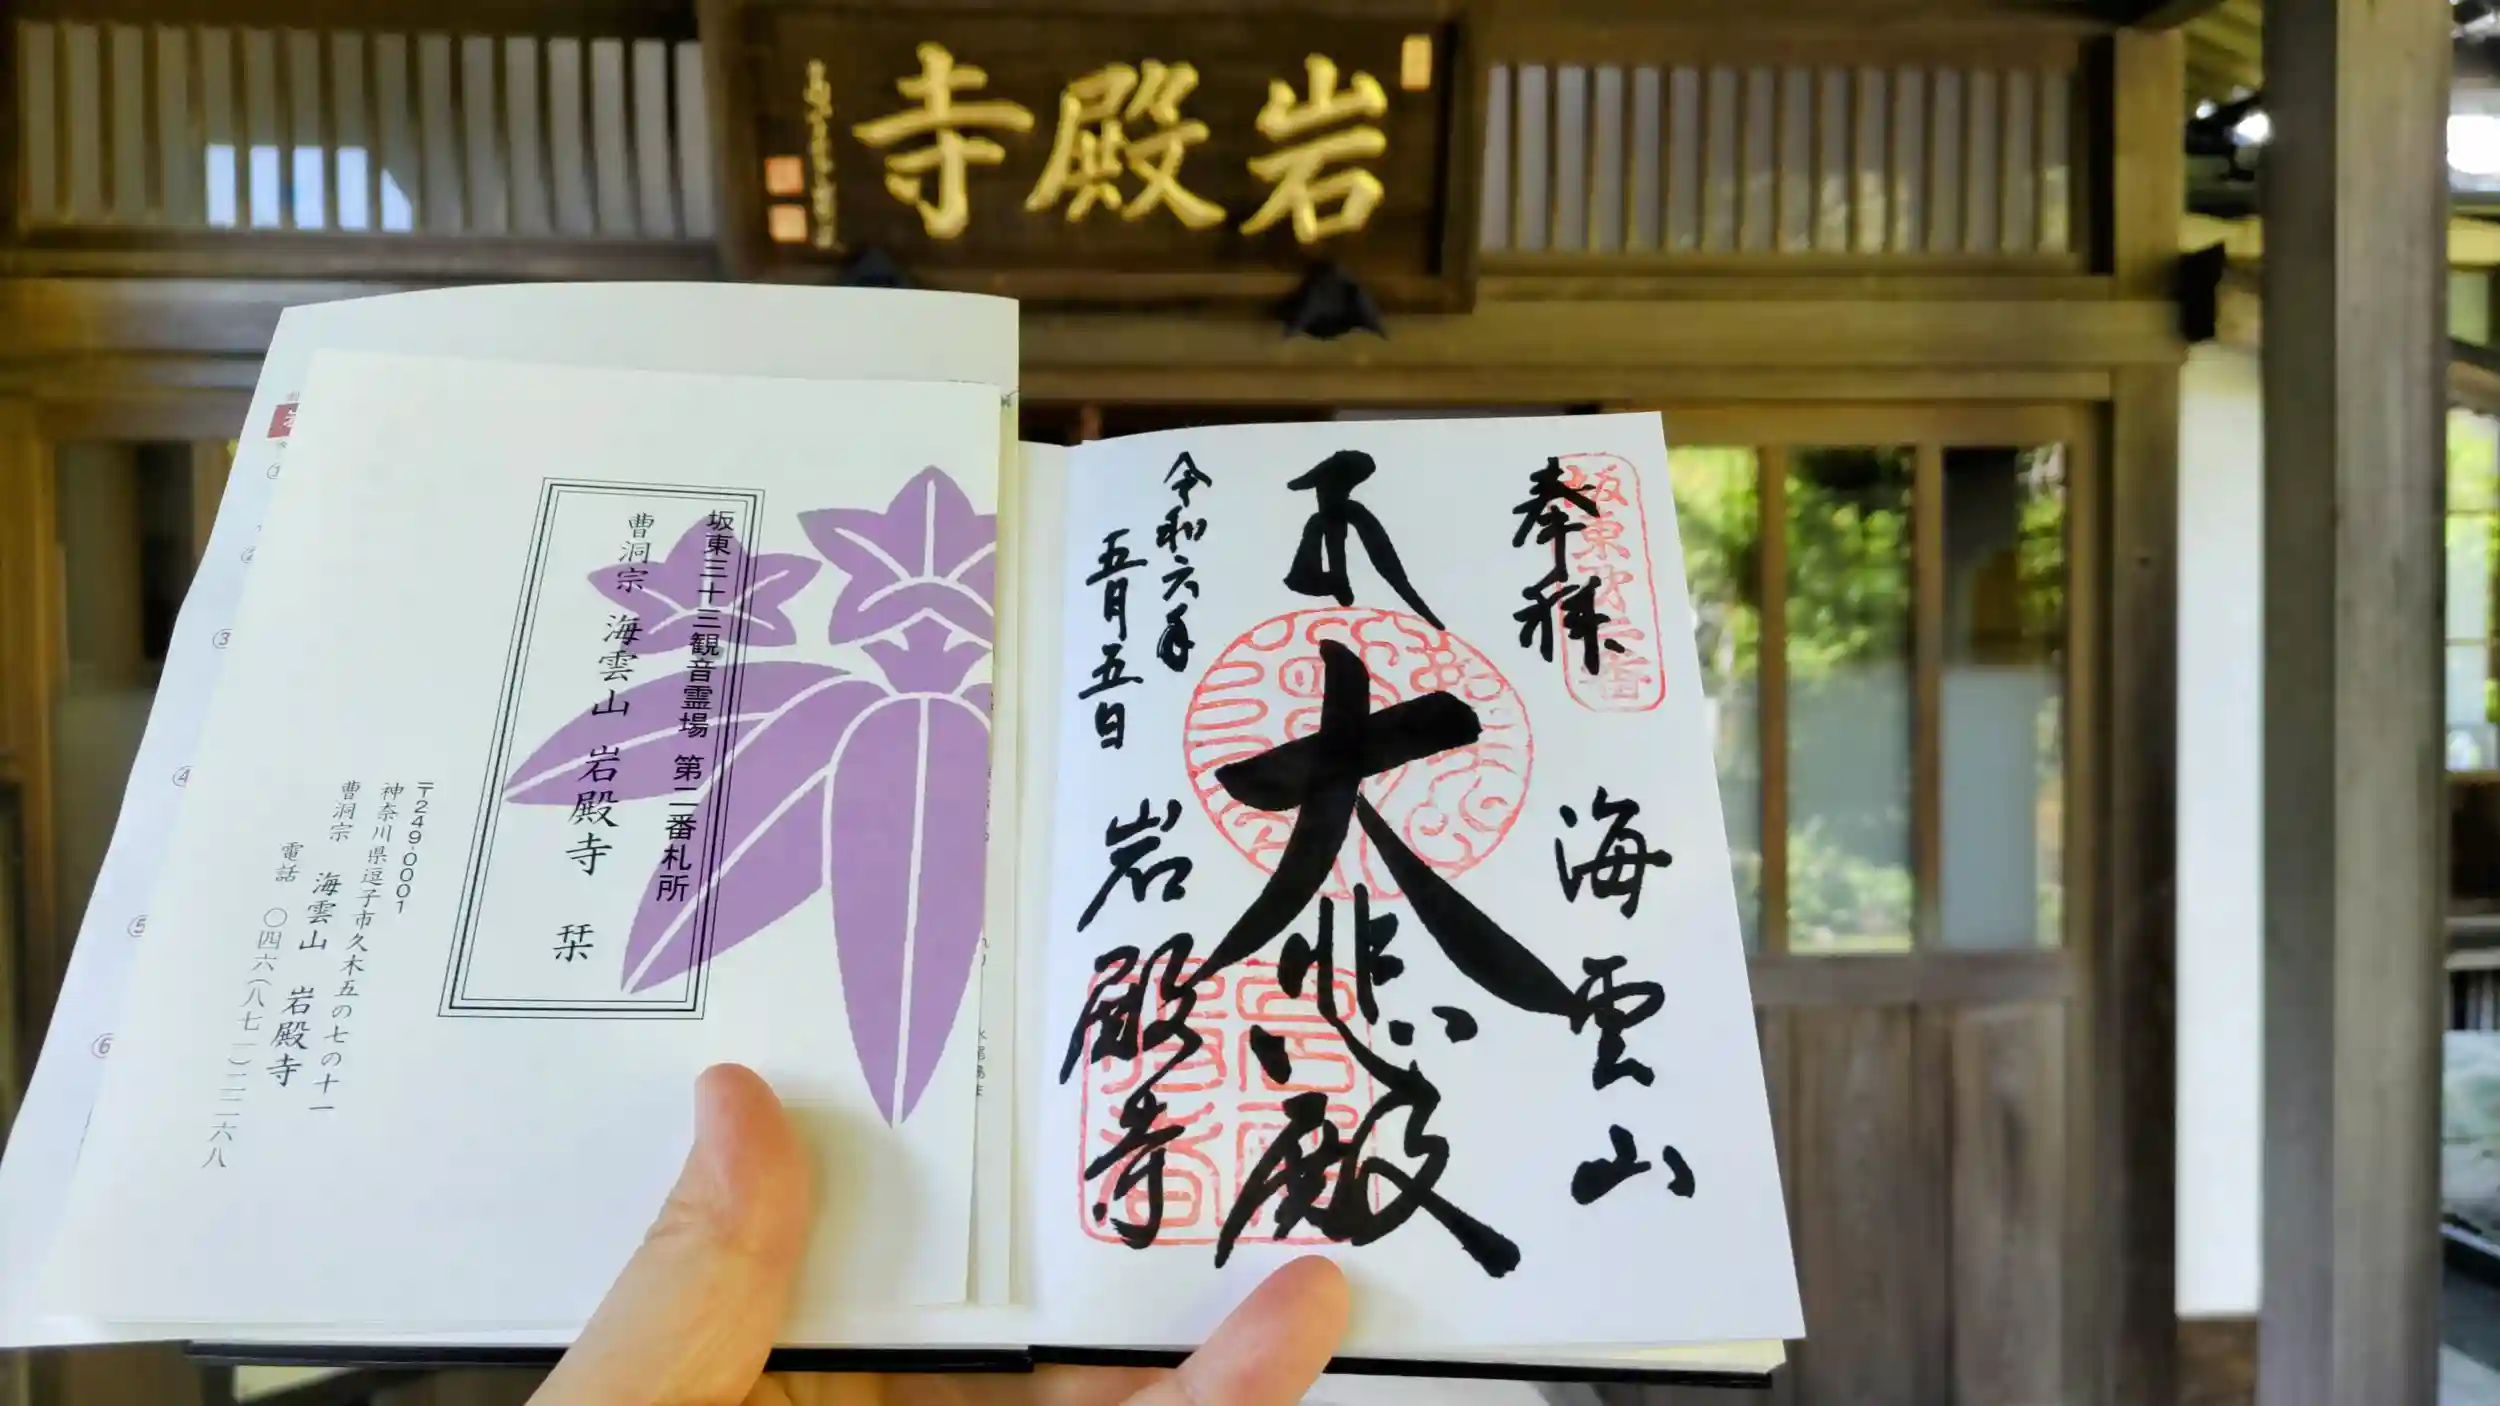 岩殿寺
坂東三十三観音霊場 第二番札所
曹洞宗 海雲山 岩殿寺 栞
〒249-0001
神奈川県逗子市久木五の七の十一
曹洞宗 海雲山 岩殿寺
電話 〇四六(八七一)二二六八
①
②
③
④
⑤
⑥
奉拝
海雲山
大悲殿
岩殿寺
令和六年
五月五日